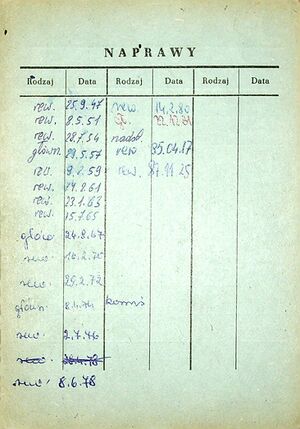 NAPRAWY
Rodzaj Data Rodzaj Data Rodzaj Data
rew. 25.9.47 rew. 14.2.80
rew. 8.5.51
rew. 28.7.54 nadzl.
główn. 29.5.57 rew 85.04.17
rew. 9.2.59 rew. 87.11.25
rew. 24.8.61
rew. 23.1.63
rew. 15.7.65
główn 24.8.67
rew. 16.2.70
rew. 25.2.72
główn. 8.4.74
rew. 2.7.76
rew. 28.4.78
rew. 8.6.78